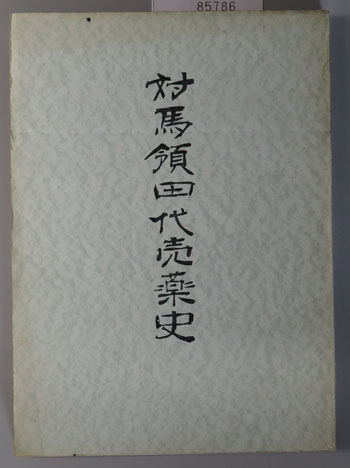 85786
対馬領田代売薬史